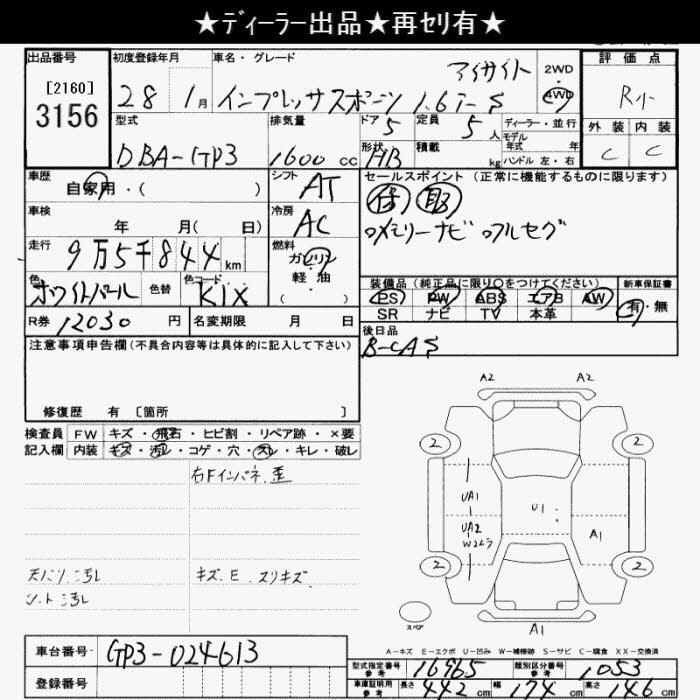 ★ディーラー出品★再セリ有★
出品番号
[2160]
3156
初度登録年月
28 1月
車名・グレード
アイサイト
インプレッサスポーツ 1.6i-S
2WD
・
4WD
評価点
R小
外装 内装
C C
型式
DBA-GP3
排気量
1600 cc
ドア 5
形状 HB
定員 5人
積載 kg
ディーラー・並行
モデル
年式 年
ハンドル 左・右
車歴
自家用・( )
シフト AT
車検
年 月( 日)
冷房 AC
走行
9万5千844km
燃料
ガソリン
・
軽油
( )
色
ホワイトパール
色替
色コード
K1X
R券 12030 円
名変期限 月 日
セールスポイント(正常に機能するものに限ります)
保 取
メモリーナビ フルセグ
装備品(純正品に限り○をつけてください)
新車保証書
PS PW ABS エアB AW
SR ナビ TV 本革
有・無
後日品
B-CAS
注意事項申告欄(不具合内容等は具体的に記入して下さい)
修復歴 有 〔箇所 〕
検査員
記入欄
FW キズ・飛石・ヒビ割・リペア跡・×要
内装 キズ・汚レ・コゲ・穴・スレ・キレ・破レ
右Fインパネ歪
天バリ汚レ
シート汚レ
キズ、E、スリキズ
A2 A2
2 2
UA1
UA2
W2ムラ
U1
A1
2 2
スペア
A1
A-キズ E-エクボ U-凹み W-補修跡 S-サビ C-腐食 XX-交換済
車台番号 GP3-024613
登録番号
型式指定番号
参考
16965
類別区分番号
参考
1053
車庫証明用
参考
長さ 442cm 幅 174cm 高さ 146cm